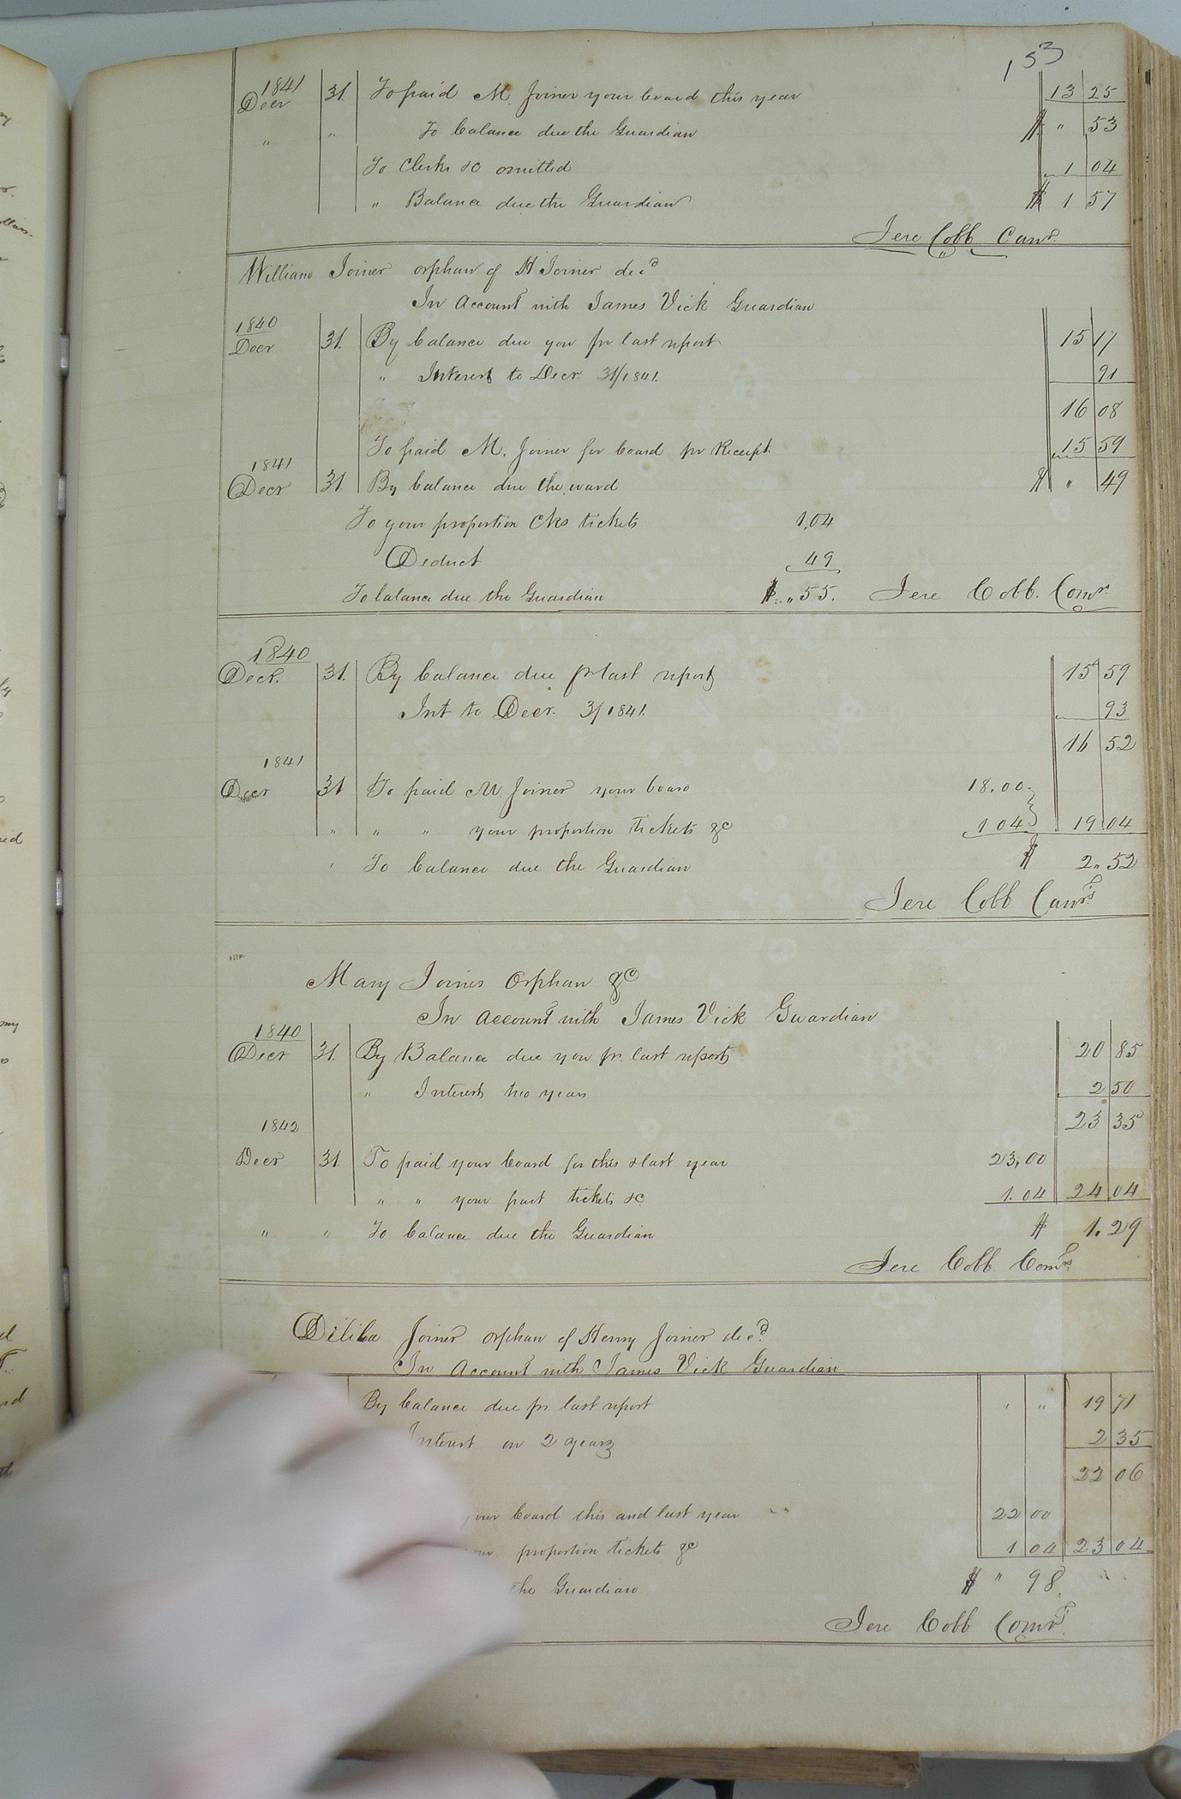 153
1841
Decr 31 To paid M. Joiner your board this year 13 25
" " To balance due the Guardian $ " 53
To Clerks &c omitted 1 04
" Balance due the Guardian $ 1 57
Jere Cobb Comr
William Joiner orphan of H Joiner decd
In Account with James Vick Guardian
1840
Decr 31. By balance due you pr last report 15 17
" Interest to Decr 31/1841. 91
16 08
To paid M. Joiner for board pr Receipt 15 59
1841
Decr 31 By balance due the ward $ " 49
To your proportion Clks tickets 1,04
Deduct 49
To balance due the Guardian $ " 55. Jere Cobb. Comr.
1840
Decr. 31. By balance due pr last report 15 59
Int to Decr. 31 1841. 93
16 52
1841
Decr 31 To paid M Joiner your board 18.00
" " " your proportion tickets &c 1 04 19 04
To balance due the Guardian $ 2.52
Jere Cobb Comr
Mary Joiner Orphan &c
In Account with James Vick Guardian
1840
Decr 31. By Balance due you pr. last report 20 85
" Interest two years 2 50
23 35
1842
Decr 31 To paid your board for this & last year 23,00
" " your part tickets &c 1.04 24 04
" " To balance due the Guardian $ 1.29
Jere Cobb Comr
Joiner orphan of Henry Joiner decd
In Account with James Vick Guardian
By balance due pr last report " " 19 71
Interest on 2 years 2 35
22 06
your board this and last year 22 00
proportion tickets &c 1 04 23 04
the Guardian $ " 98
Jere Cobb Comr